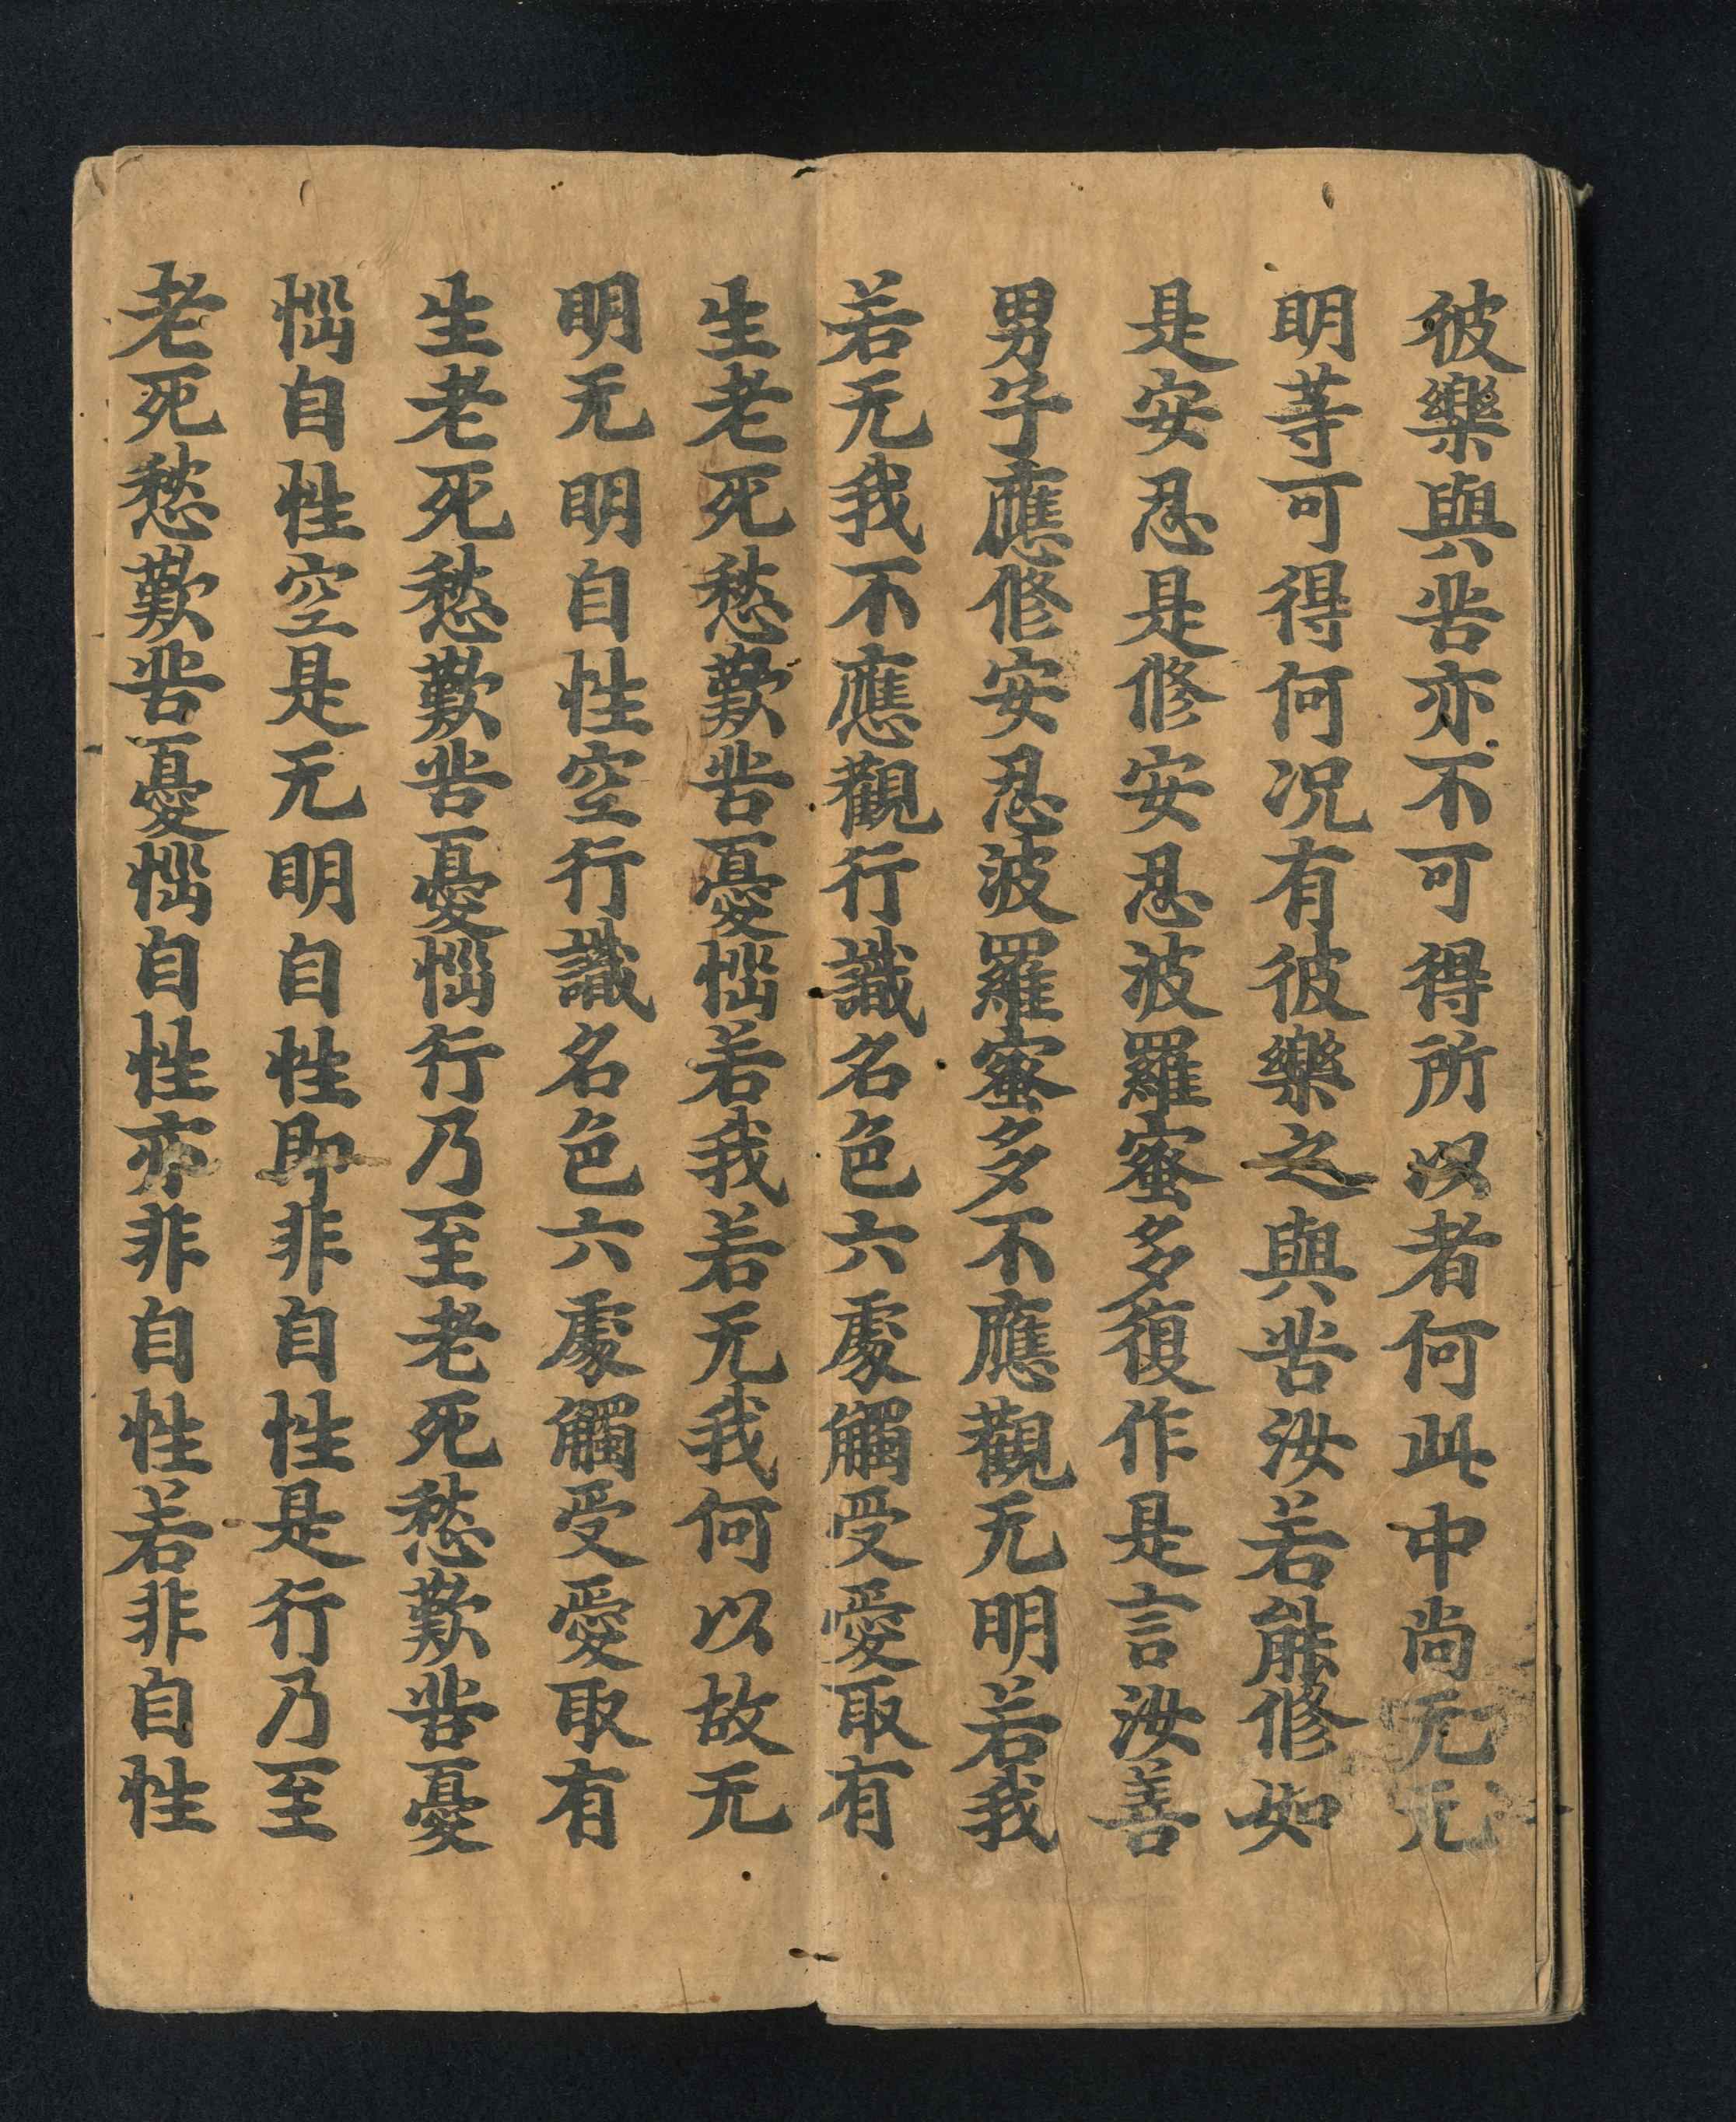 彼樂與苦亦不可得所以者何此中尚无无
明等可得何況有彼樂之與苦汝若能修如
是安忍是修安忍波羅蜜多復作是言汝善
男子應修安忍波羅蜜多不應觀无明若我
若无我不應觀行識名色六處觸受愛取有
生老死愁歎苦憂惱若我若无我何以故无
明无明自性空行識名色六處觸受愛取有
生老死愁歎苦憂惱行乃至老死愁歎苦憂
惱自性空是无明自性即非自性是行乃至
老死愁歎苦憂惱自性亦非自性若非自性